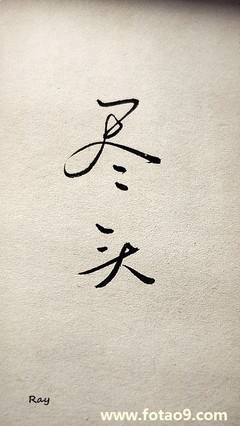 尽头
Ray
www.fotao9.com